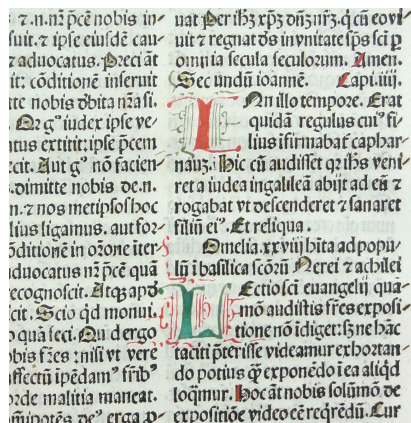 t.n.nr̄ p̄cē nobis in⸗
ſuit. ⁊ ipſe eiuſdē cau⸗
⁊ aduocatus. Preci āt
it: cōditionē inſeruit
tte nobis d̄bita nr̄a ſi.
Qr gͦ iudex ipſe ve⸗
ntus extitit: ipſe p̄cem
ecit. Aut gͦ nō facien⸗
dimitte nobis de.n.
n. ⁊ nos metipſos hoc
lius ligamus. aut for⸗
ōditionē in orōne iter⸗
aduocatus nr̄ p̄cē quā
recognoſcit. Atqꝫ apd̓
cit. Scio qd̓ monui.
o quā feci. Qui d ergo
obis fr̄es : niſi vt vere
affectū ipēdamꝰ fr̄ibꝰ
orde malitia maneat.
omīpotēs deꝰ erga
uat Per ih̄ꝫ xp̄ꝫ dn̄ꝫ nr̄ꝫ. q̇ cū eo vi
uit ⁊ regnat d̄s in vnitate ſp̄s ſcī ꝑ
omnia ſecula ſeculorum. Amen.
Secundū ioannē. Capi.iiij.
IN illo tempore. Erat
quidā regulus cuiꝰ fi⸗
lius īfirmabat̄ caphar
nauꝫ. Hic cū audiſſet qꝛ ih̄s veni
ret a iudea in galileā abijt ad eū ⁊
rogabat vt deſcenderet ⁊ ſanaret
filiū eiꝰ. Et reliqua.
Omelia .xxviij hita ad popu⸗
lū ī baſilica ſcōꝝ Nerei ⁊ achilei
LEctio ſcī euangelij qua⸗
mō audiſtis fr̄es expoſi
tione nō īdiget: ſꝫ ne hāc
taciti p̄teriſſe videamur exhortan⸗
do potius q̄ꝫ exponēdo ī ea aliqd
loq̇mur. Hoc āt nobis ſolūmō de
expoſitiōe video eē reqrēdū. Cur